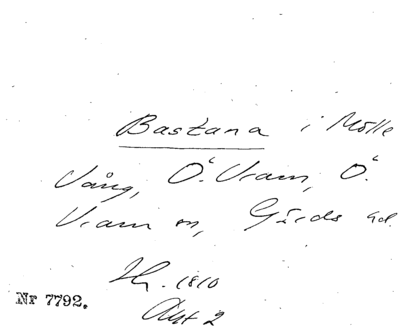 Bastana i Mölle
Vång, Ö. Vram, Ö.
Vram sn, Gärds hd.
1810
Akt 2
Nr 7792.